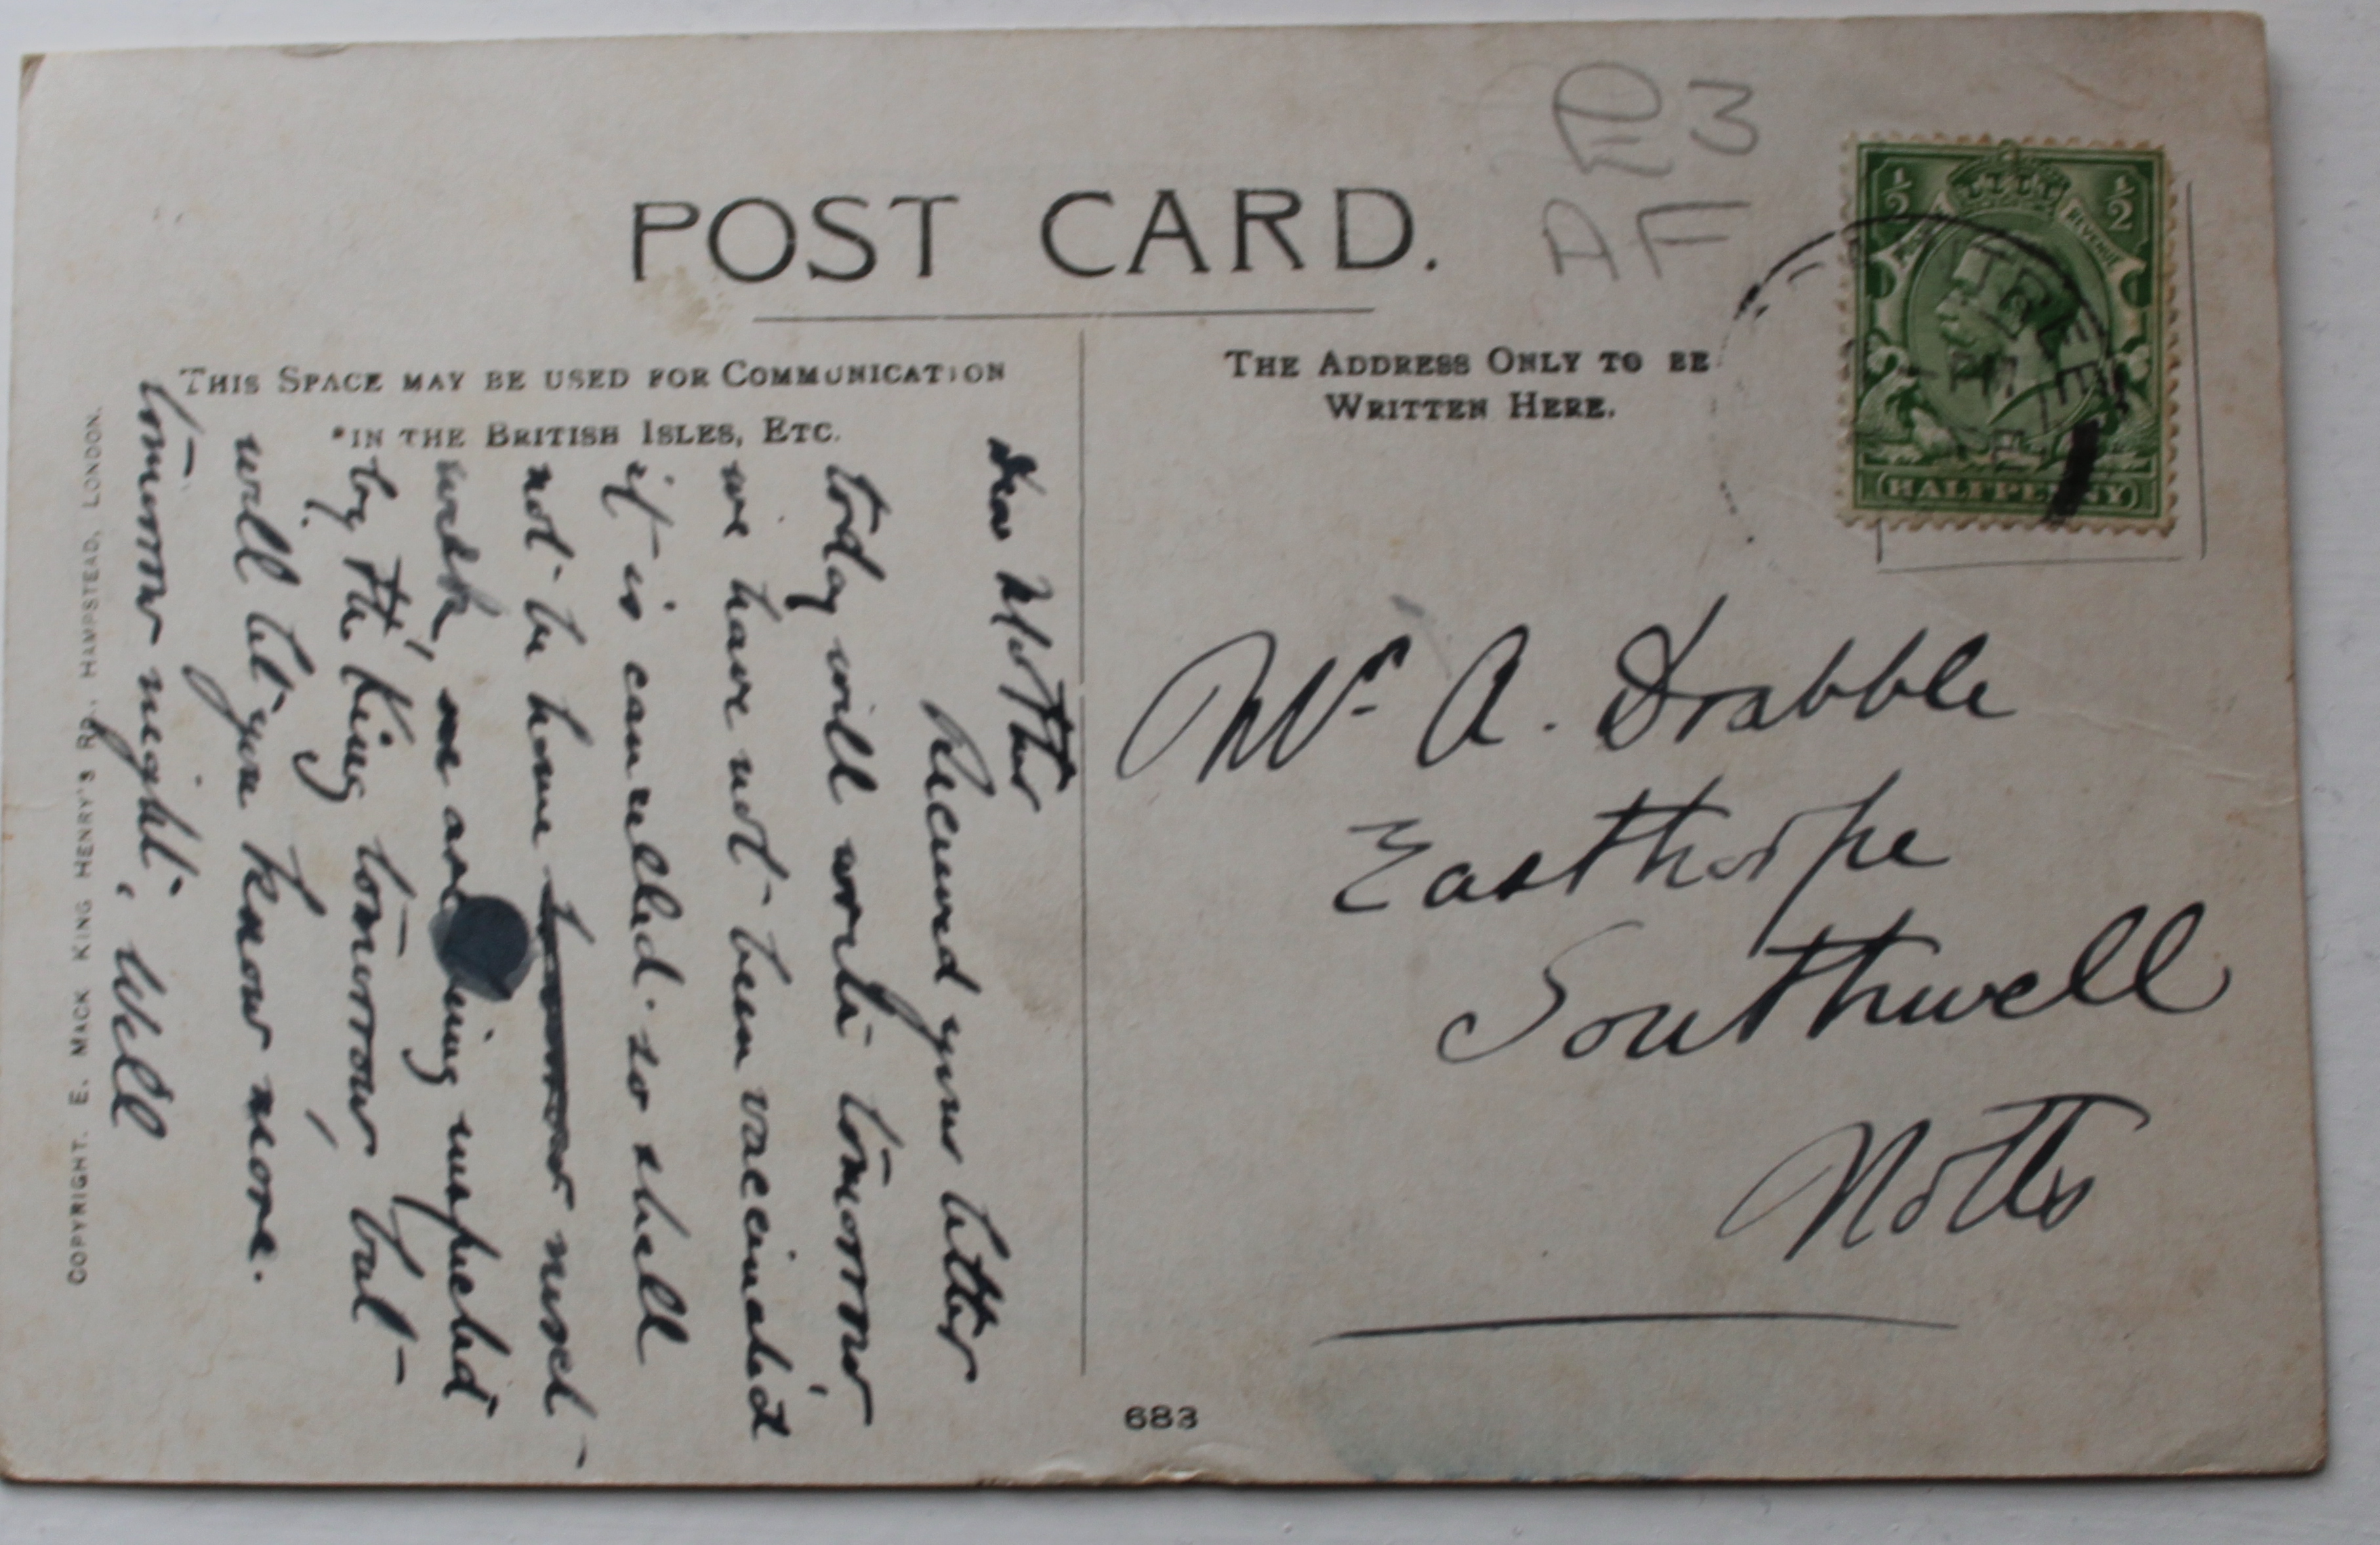 £3
AF
POST CARD.
THIS SPACE MAY BE USED FOR COMMUNICATION
IN THE BRITISH ISLES, ETC.
THE ADDRESS ONLY TO BE
WRITTEN HERE.
½ ½
REVENUE
HALFPENNY
Dear Mother
Received your letter
today will write tomorrow
we have not been vaccinated
it is cancelled. so shall
not be home tomorrow next
week, we are being inspected
by the King tomorrow, but
will let you know more.
tomorrow night, Will
Mr A. Drabble
Easthorpe
Southwell
Notts
683
COPYRIGHT. E. MACK KING HENRY'S RD., HAMPSTEAD, LONDON.